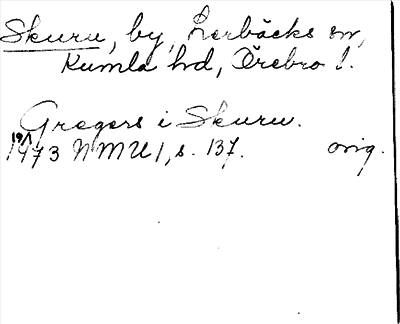 Skuru, by, Lerbäcks sn,
Kumla hd, Örebro l.
Gregers i Skuru.
19/1
1473 NMU 1, s. 137. orig.